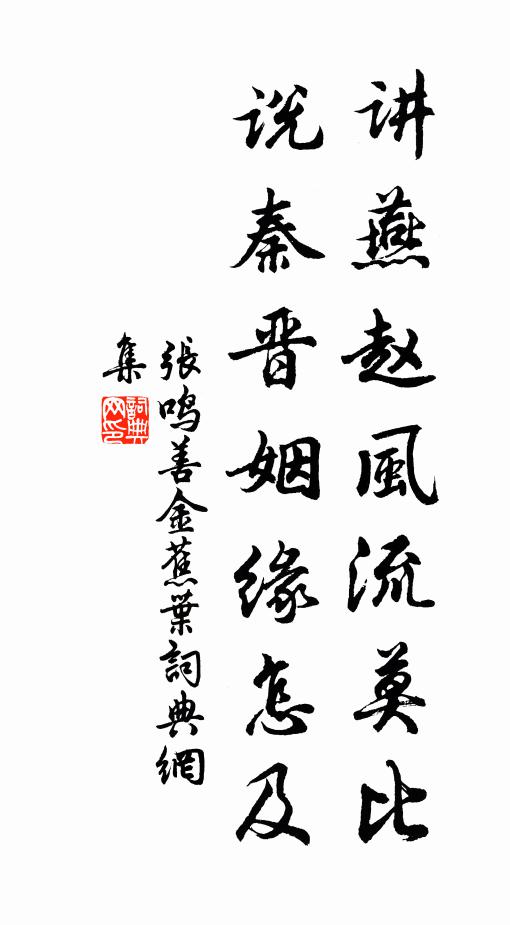 讲燕赵風流莫比
说秦晋姻缘怎及
張鸣善金蕉葉詞典網
集
詞典
网印